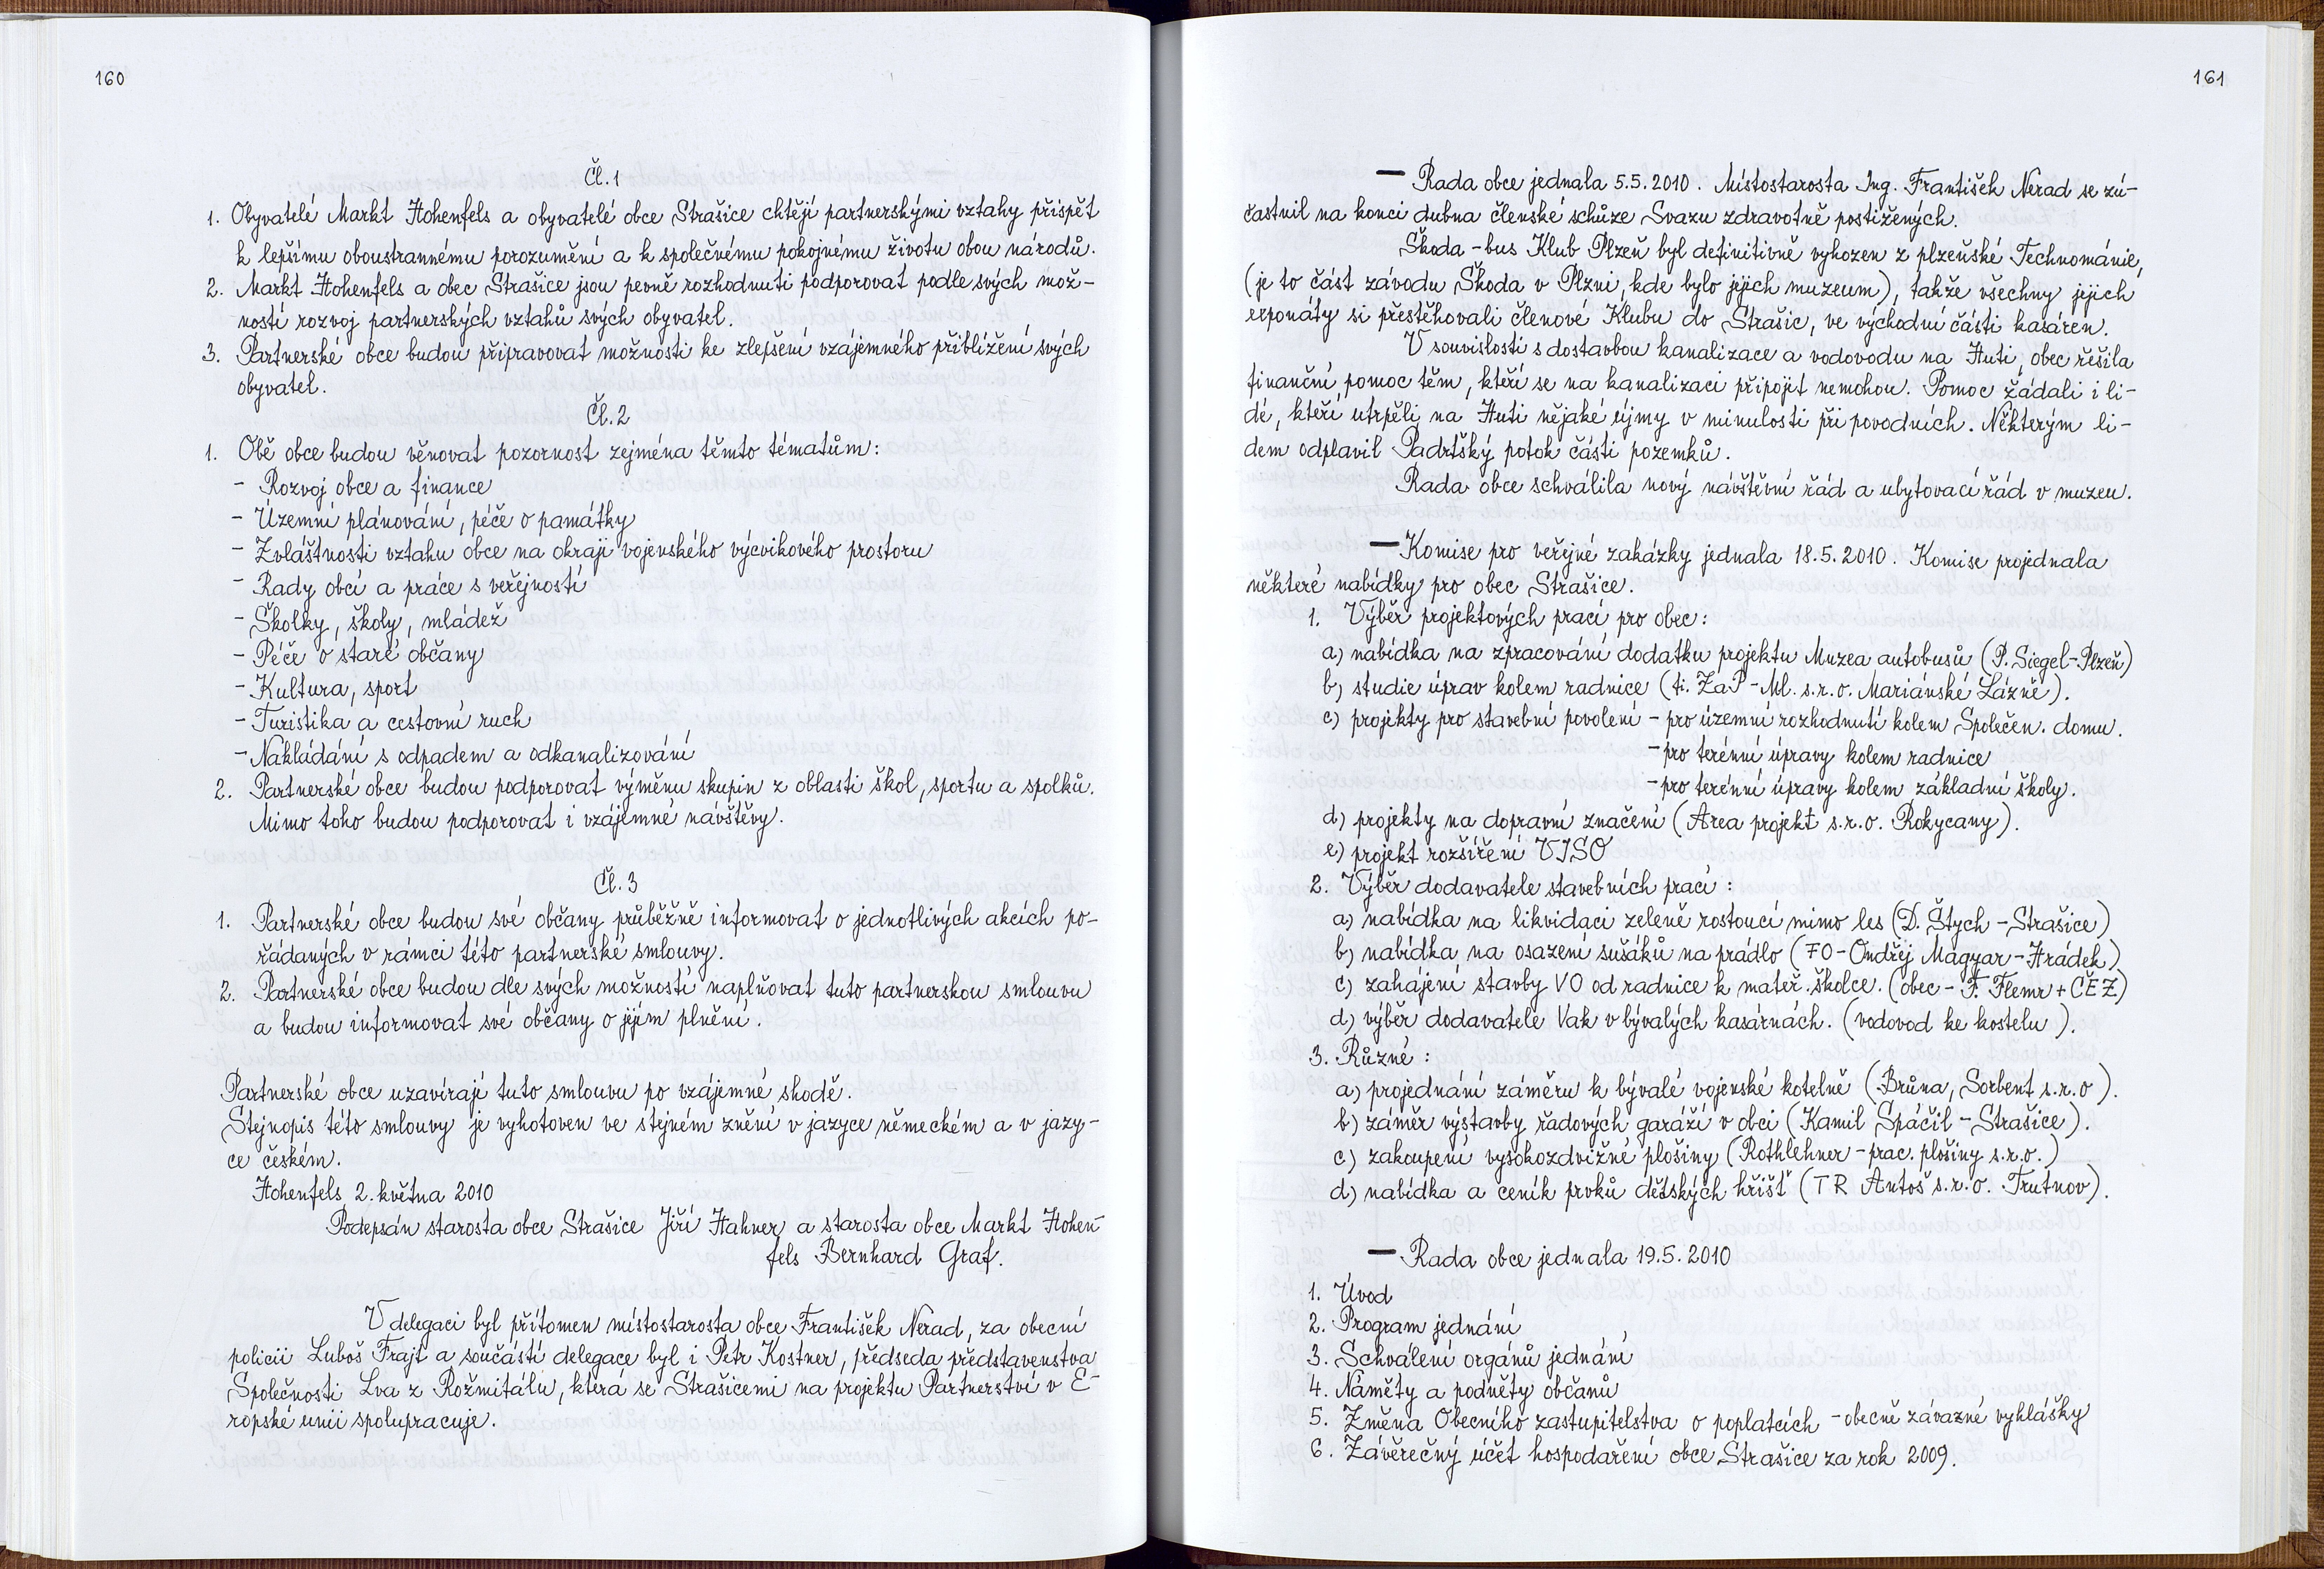 160
Čl. 1
1. Obyvatelé Markt Hohenfels a obyvatelé obce Strašice chtějí partnerskými vztahy přispět
k lepšímu oboustrannému porozumění a k společnému pokojnému životu obou národů.
2. Markt Hohenfels a obec Strašice jsou pevně rozhodnuti podporovat podle svých mož-
ností rozvoj partnerských vztahů svých obyvatel.
3. Partnerské obce budou připravovat možnosti ke zlepšení vzájemného přiblížení svých
obyvatel.
Čl. 2
1. Obě obce budou věnovat pozornost zejména těmto tématům:
- Rozvoj obce a finance
- Územní plánování, péče o památky
- Zvláštnosti vztahu obce na okraji vojenského výcvikového prostoru
- Rady obcí a práce s veřejností
- Školky, školy, mládež
- Péče o staré občany
- Kultura, sport
- Turistika a cestovní ruch
- Nakládání s odpadem a odkanalizování
2. Partnerské obce budou podporovat výměnu skupin z oblasti škol, sportu a spolků.
Mimo toho budou podporovat i vzájemné návštěvy.
Čl. 3
1. Partnerské obce budou své občany průběžně informovat o jednotlivých akcích po-
řádaných v rámci této partnerské smlouvy.
2. Partnerské obce budou dle svých možností naplňovat tuto partnerskou smlouvu
a budou informovat své občany o jejím plnění.
Partnerské obce uzavírají tuto smlouvu po vzájemné shodě.
Stejnopis této smlouvy je vyhotoven ve stejném znění v jazyce německém a v jazy-
ce českém.
Hohenfels 2. května 2010
Podepsán starosta obce Strašice Jiří Hahner a starosta obce Markt Hohen-
fels Bernhard Graf.
V delegaci byl přítomen místostarosta obce František Nerad, za obecní
policii Luboš Frajt a součástí delegace byl i Petr Kostner, předseda představenstva
Společnosti Lva z Rožmitálu, která se Strašicemi na projektu Partnerství v E-
ropské unii spolupracuje.
161
— Rada obce jednala 5.5.2010. Místostarosta Ing. František Nerad se zú-
častnil na konci dubna členské schůze Svazu zdravotně postižených.
Škoda - bus Klub Plzeň byl definitivně vyhozen z plzeňské Technománie,
(je to část závodu Škoda v Plzni, kde bylo jejich muzeum), takže všechny jejich
exponáty si přestěhovali členové Klubu do Strašic, ve východní části kasáren.
V souvislosti s dostavbou kanalizace a vodovodu na Huti, obec řešila
finanční pomoc těm, kteří se na kanalizaci připojit nemohou. Pomoc žádali i li-
dé, kteří utrpěli na Huti nějaké újmy v minulosti při povodních. Některým li-
dem odplavil Padrťský potok části pozemků.
Rada obce schválila nový návštěvní řád a ubytovací řád v muzeu.
— Komise pro veřejné zakázky jednala 18.5.2010. Komise projednala
některé nabídky pro obec Strašice.
1. Výběr projektových prací pro obec:
a) nabídka na zpracování dodatku projektu Muzea autobusů (P. Siegel - Plzeň)
b) studie úprav kolem radnice (fi. ZaP - Ml. s.r.o. Mariánské Lázně).
c) projekty pro stavební povolení - pro územní rozhodnutí kolem Společen. domu.
- pro terénní úpravy kolem radnice
- pro terénní úpravy kolem základní školy.
d) projekty na dopravní značení (Area projekt s.r.o. Rokycany).
e) projekt rozšíření VISO
2. Výběr dodavatele stavebních prací:
a) nabídka na likvidaci zeleně rostoucí mimo les (D. Štych - Strašice)
b) nabídka na osazení sušáků na prádlo (FO - Ondřej Magyar - Hrádek)
c) zahájení stavby VO od radnice k mateř. školce. (obec - F. Flemr + ČEZ)
d) výběr dodavatele Vak v bývalých kasárnách. (vodovod ke kostelu).
3. Různé:
a) projednání záměru k bývalé vojenské kotelně (Brůna, Sorbent s.r.o).
b) záměr výstavby řadových garáží v obci (Kamil Spáčil - Strašice).
c) zakoupení vysokozdvižné plošiny (Rothlehner - prac. plošiny s.r.o.)
d) nabídka a ceník prvků dětských hřišť (TR Antoš s.r.o. Trutnov).
— Rada obce jednala 19.5.2010
1. Úvod
2. Program jednání
3. Schválení orgánů jednání
4. Náměty a podněty občanů
5. Změna Obecního zastupitelstva o poplatcích - obecně závazné vyhlášky
6. Závěrečný účet hospodaření obce Strašice za rok 2009.